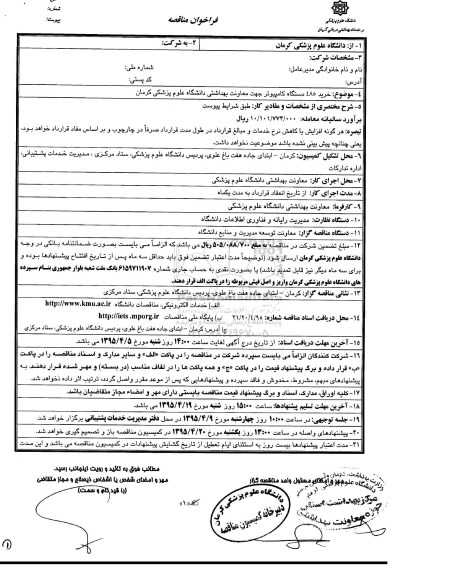 دانشگاه علوم پزشکی
و خدمات بهداشتی درمانی کرمان
فراخوان مناقصه
شماره:
پیوست:
۱- از: دانشگاه علوم پزشکی کرمان
۲- به شرکت:
۳- مشخصات شرکت:
نام و نام خانوادگی مدیرعامل:
شماره ملی:
آدرس:
کد پستی:
۴- موضوع: خرید ۴۸۵ دستگاه کامپیوتر جهت معاونت بهداشتی دانشگاه علوم پزشکی کرمان
۵- شرح مختصری از مشخصات و مقادیر کار: طبق شرایط پیوست
برآورد سالیانه معامله: ۱۰/۱۰۱/۷۷۴/۰۰۰ ریال
تبصره: هر گونه افزایش یا کاهش نرخ خدمات و مبالغ قرارداد در طول مدت قرارداد صرفاً در چارچوب و بر اساس مفاد قرارداد خواهد بود.
یعنی چنانچه پیش بینی نشده باشد موضوعیت نخواهد داشت.
۶- محل تشکیل کمیسیون: کرمان - ابتدای جاده هفت باغ علوی، پردیس دانشگاه علوم پزشکی، ستاد مرکزی، مدیریت خدمات پشتیبانی،
اداره تدارکات
۷- محل اجرای کار: معاونت بهداشتی دانشگاه علوم پزشکی
۸- مدت اجرای کار: از تاریخ انعقاد قرارداد به مدت یکماه
۹- کارفرما: معاونت بهداشتی دانشگاه علوم پزشکی
۱۰- دستگاه نظارت: مدیریت رایانه و فناوری اطلاعات دانشگاه
۱۱- دستگاه مناقصه گزار: معاونت توسعه مدیریت و منابع دانشگاه
۱۲- مبلغ تضمین شرکت در مناقصه به مبلغ ۵۰۵/۰۸۸/۷۰۰ ریال می باشد که الزاماً می بایست بصورت ضمانتنامه بانکی در وجه
دانشگاه علوم پزشکی کرمان ارسال شود (توضیحاً مدت اعتبار تضمین فوق باید حداقل سه ماه پس از تاریخ افتتاح پیشنهادها بوده و
برای سه ماه دیگر نیز قابل تمدید باشد) یا بصورت نقدی به حساب جاری شماره ۶۱۵۹۷۱۱۹۰۷ بانک ملت شعبه بلوار جمهوری بنام سپرده
های دانشگاه علوم پزشکی کرمان واریز و اصل فیش مربوطه را در پاکت الف قرار دهند.
۱۳- نشانی مناقصه گزار: کرمان - ابتدای جاده هفت باغ علوی، پردیس دانشگاه علوم پزشکی، ستاد مرکزی
۱۴- محل دریافت اسناد مناقصه شماره: ۲۱/۲۰/۴/۹۵
الف) خدمات الکترونیکی، مناقصات دانشگاه http://www.kmu.ac.ir
ب) پایگاه ملی مناقصات http://iets.mporg.ir
ج) آدرس: کرمان - ابتدای جاده هفت باغ علوی، پردیس دانشگاه علوم پزشکی، ستاد مرکزی
۱۵- آخرین مهلت دریافت اسناد: از تاریخ درج آگهی لغایت ساعت ۱۴:۰۰ روز شنبه مورخ ۱۳۹۵/۴/۵ می باشد.
۱۶- شرکت کنندگان الزاماً می بایست سپرده شرکت در مناقصه را در پاکت «الف» و سایر مدارک و اسناد مناقصه را در پاکت
«ب» قرار داده و برگ پیشنهاد قیمت را در پاکت «ج» و همه پاکت ها را در لفاف مناسب (در بسته) و مهر شده قرار دهند. به
پیشنهادهای مبهم، مشروط، مخدوش و فاقد سپرده و پیشنهادهایی که پس از موعد مقرر واصل گردد، ترتیب اثر داده نخواهد شد.
۱۷- کلیه اوراق، مدارک، اسناد و برگ پیشنهاد قیمت مناقصه بایستی دارای مهر و امضاء مجاز متقاضیان باشد.
۱۸- آخرین مهلت تسلیم پیشنهادها: ساعت ۱۵:۰۰ شنبه مورخ ۱۳۹۵/۴/۱۹ می باشد.
۱۹- جلسه توجیهی: در ساعت ۱۰:۰۰ روز چهارشنبه مورخ ۱۳۹۵/۴/۹ در محل دفتر مدیریت خدمات پشتیبانی برگزار خواهد شد.
۲۰- پیشنهادهای واصله در ساعت ۱۳:۰۰ روز یکشنبه مورخ ۱۳۹۵/۴/۲۰ در کمیسیون مناقصه باز و تصمیم گیری خواهد شد.
۲۱- مدت اعتبار پیشنهادها بیست روز به استثنای ایام تعطیل از تاریخ گشایش پیشنهادات در کمیسیون مناقصه می باشد و این مدت
مهر و امضای مسئول واحد مناقصه گزار
مطالب فوق به تائید و رویت اینجانب رسید.
مهر و امضای شخص یا اشخاص ذیصلاح و مجاز متقاضی
(با قید نام و سمت)
دانشگاه علوم پزشکی کرمان
دبیرخانه کمیسیون مناقصه
معاونت بهداشتی